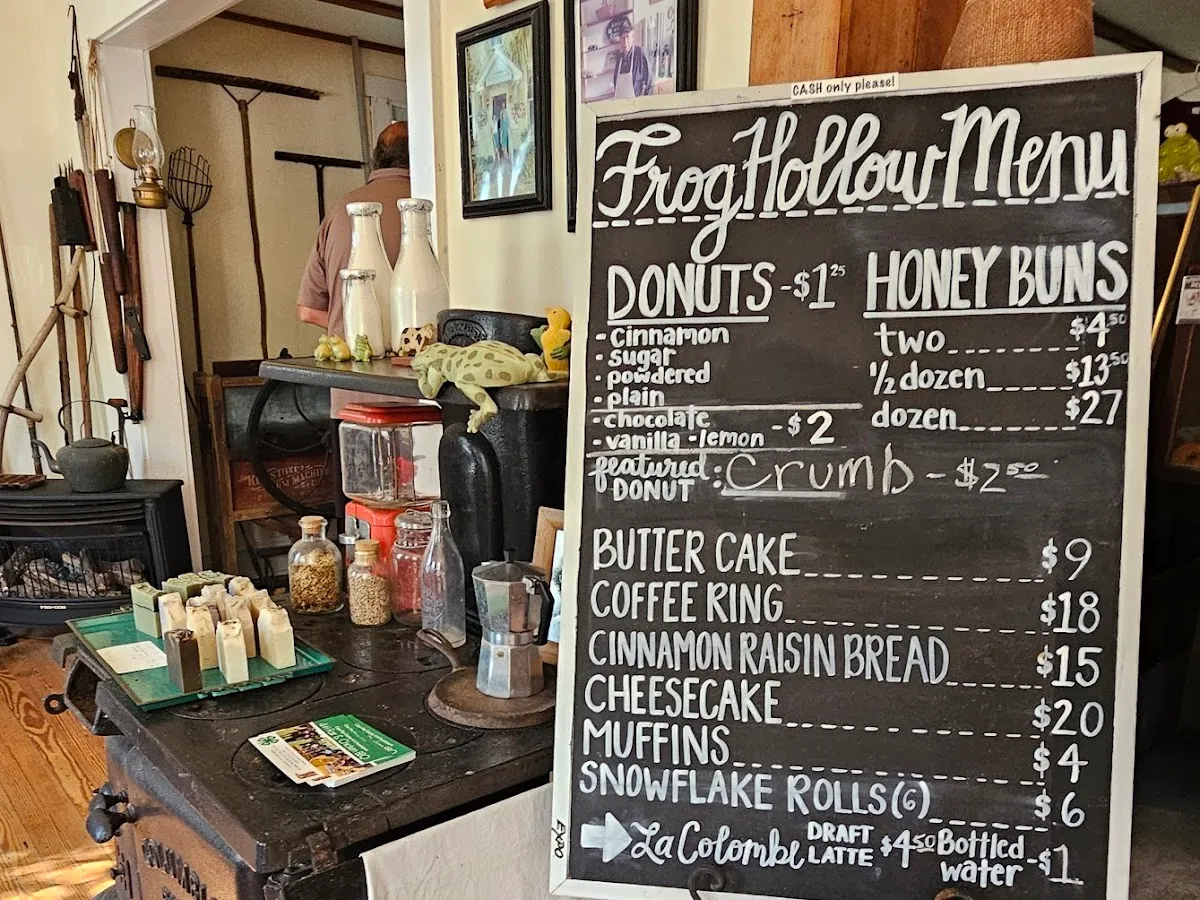 CASH only please!
Frog Hollow Menu
DONUTS - $1.25
• cinnamon
• sugar
• powdered
• plain
• chocolate
• vanilla • lemon - $2
featured DONUT : Crumb - $2.50
HONEY BUNS
two $4.50
1/2 dozen $13.50
dozen $27
BUTTER CAKE $9
COFFEE RING $18
CINNAMON RAISIN BREAD $15
CHEESECAKE $20
MUFFINS $4
SNOWFLAKE ROLLS (6) $6
La Colombe DRAFT LATTE $4.50 Bottled water - $1